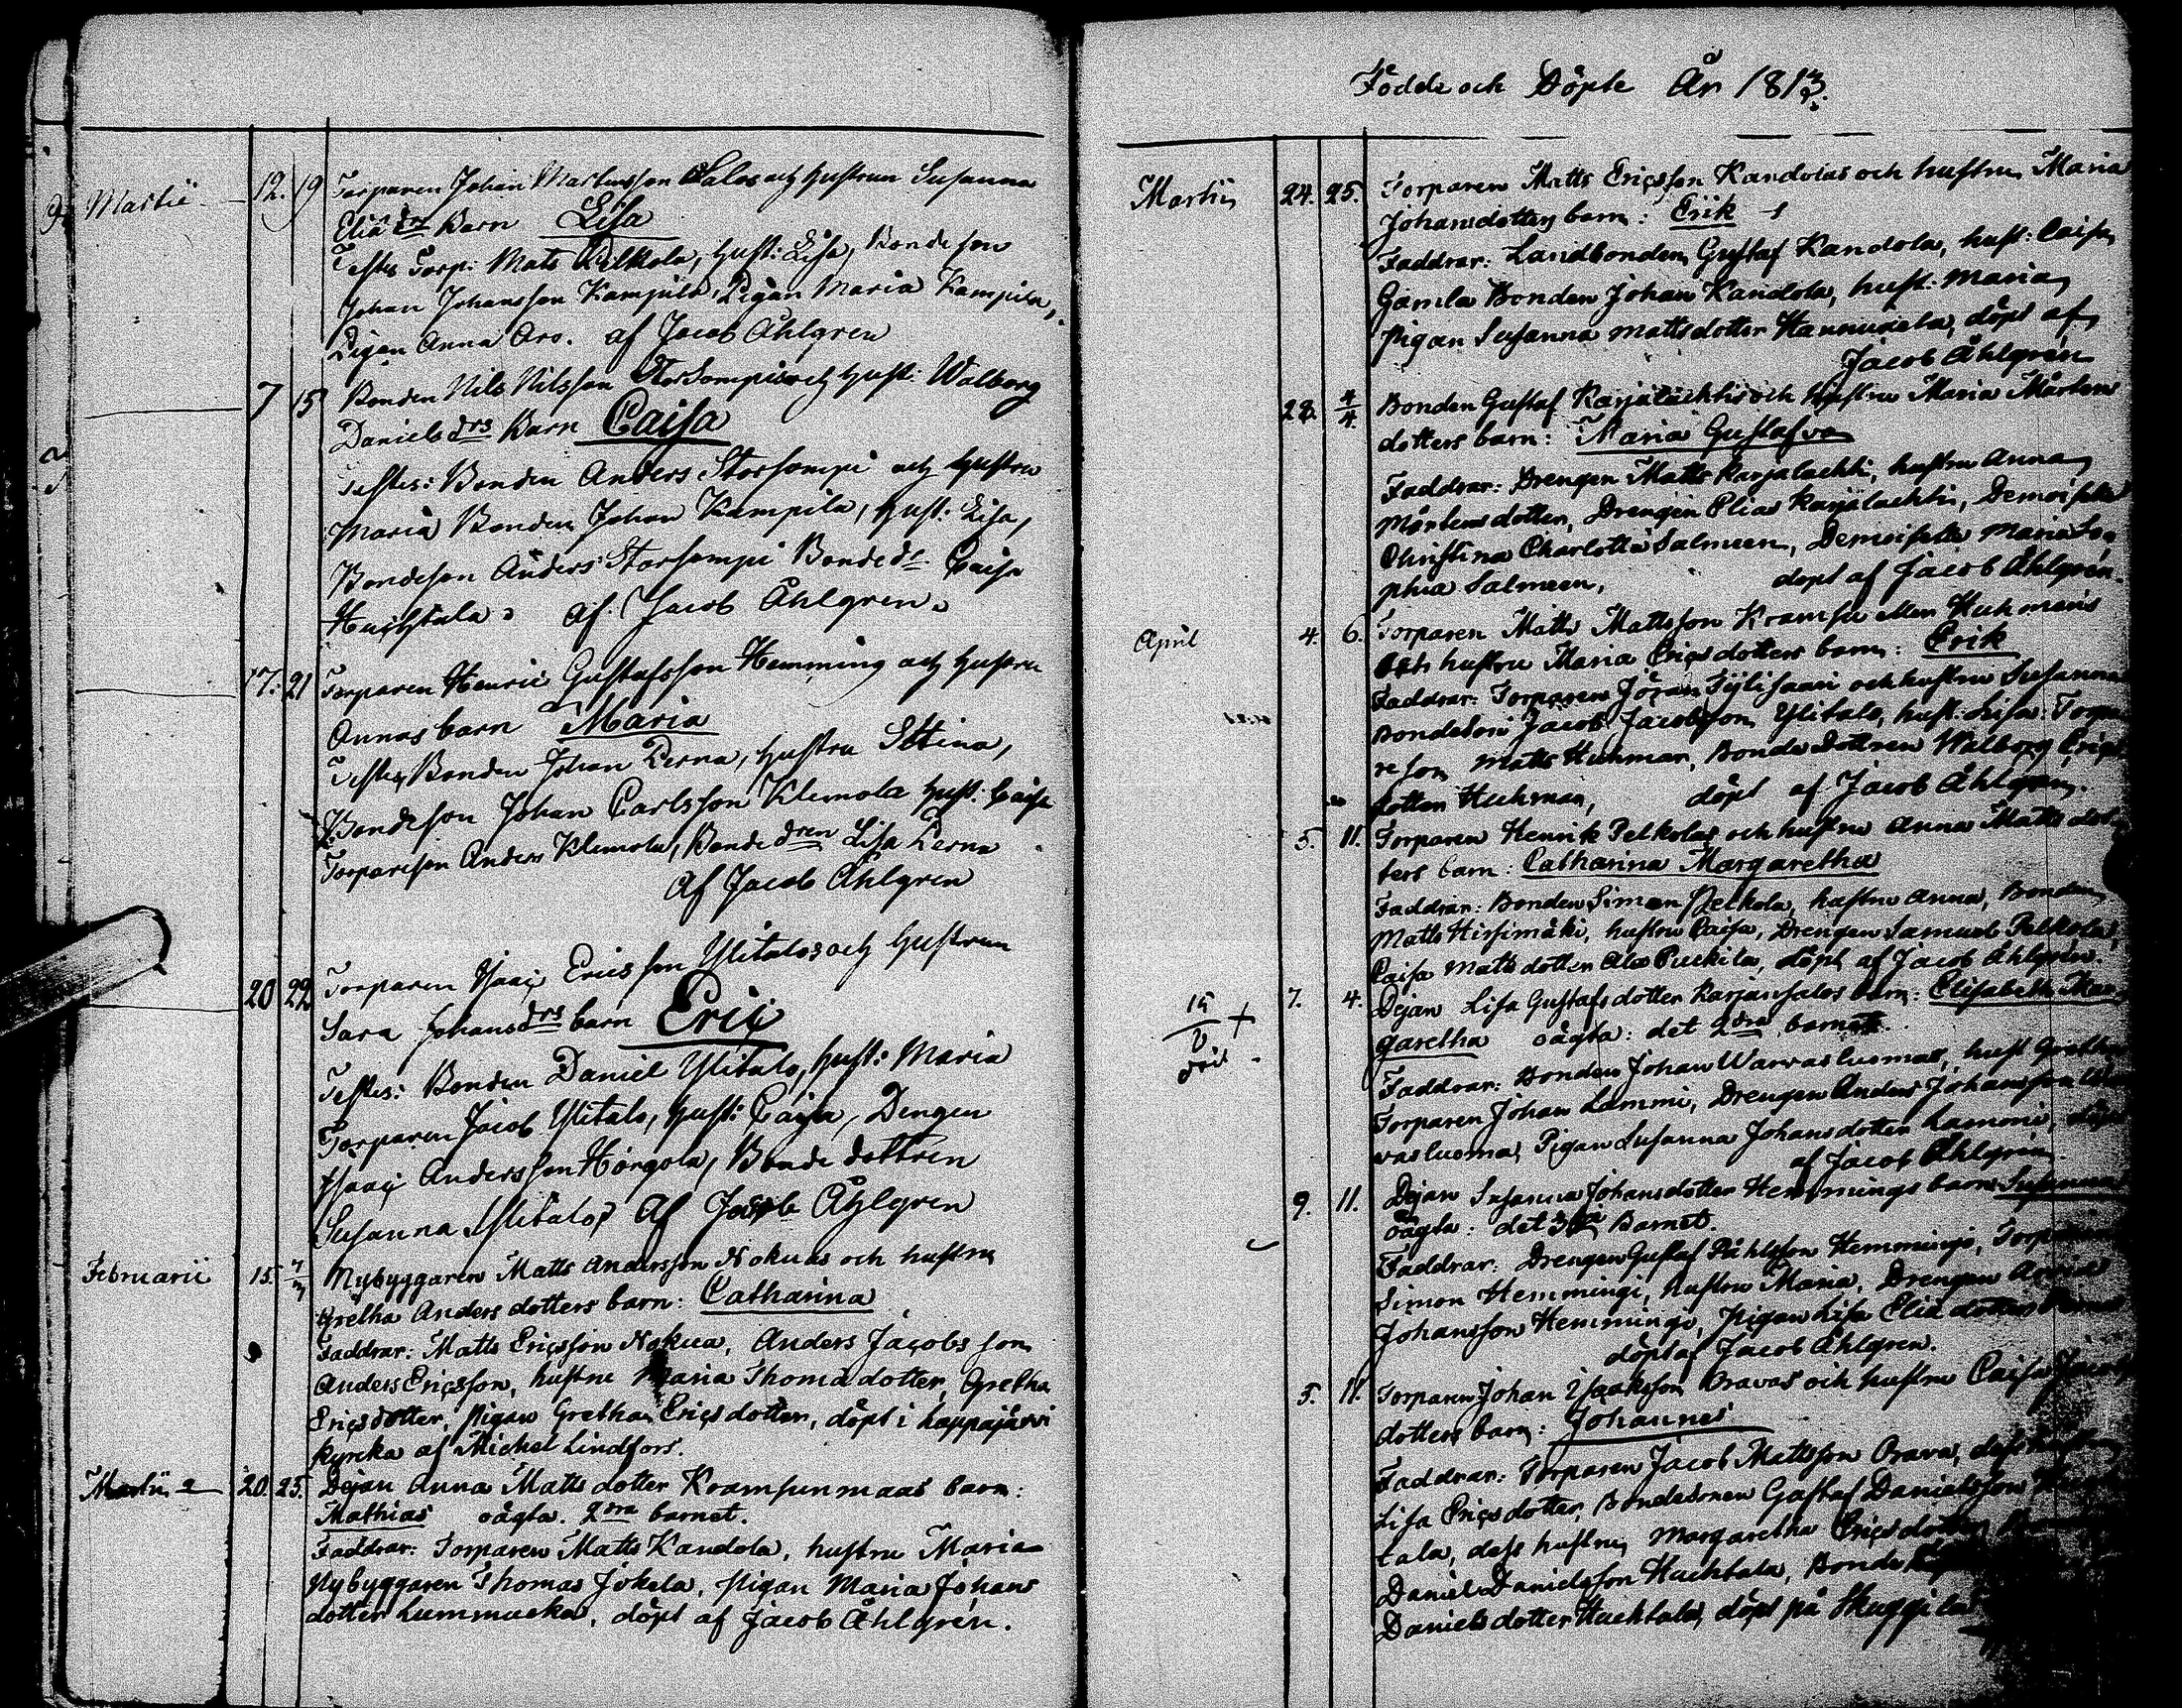 Martii 12. 19 Torparen Johan Martensson Salos och hustrun Susanna
Eliæ drs Barn Lisa
Testes Torp: Mats Pelkola, hust: Lisa, Bondeson
Johan Johansson Kampila, Pigan Maria Kampila,
Pigan Anna Aro. af Jacob Åhlgren
7 15 Bonden Nils Nilsson Storsompis och hust: Walborg
Daniels drs Barn Caisa
Testes: Bonden Anders Storsompi och hustru
Maria Bonden Johan Kampila, hust: Lisa,
Bondeson Anders Storsompi Bonde dr Caisa
Huchtala. af Jacob Åhlgren.
17. 21 Torparen Henric Gustafsson Hemming och hustru
Annas barn Maria
Testes Bonden Johan Perna, hustru Stina,
Bondeson Johan Carlsson Klemola hust: Caisa
Torpareson Anders Klemola, Bonde dren Lisa Perna
Af Jacob Åhlgren
20 22 Torparen Isaac Ericsson Ylitalos och hustrun
Sara Johans drs barn Eric
Testes: Bonden Daniel Ylitalo, hust: Maria
Torparen Jacob Ylitalo, hust: Caisa, Dengen
Isaac Andersson Horgola, Bonde dottren
Susanna Ylitalo, Af Jacob Åhlgren
Februarii 15. 7/3 Nybyggaren Matts Andersson Nokuas och hustru
Gretha Anders dotters barn: Catharina
Faddrar: Matts Ericsson Nokua, Anders Jacobsson
Anders Ericsson, hustru Maria Thomæ dotter, Gretha
Erics dotter, Pigan Gretha Erics dotter, döpt i Lappajärvi
kyrcka af Michel Lindfors.
Martii 20. 25. Dejan Anna Matts dotter Krampunmaas barn:
Mathias oägta. 2dra barnet.
Faddrar: Torparen Matts Kandola, hustru Maria
Nybyggaren Thomas Jokela, Pigan Maria Johans
dotter Lummucka, döpt af Jacob Åhlgren.
Födde och Döpte År 1813.
Martii 24. 25. Torparen Matts Ericsson Kandolas och hustru Maria
Johansdotters barn: Erik
Faddrar: Landbonden Gustaf Kandola, hust: Caisa,
Gamla Bonden Johan Kandola, hust: Maria,
Pigan Susanna Mattsdotter Hannukala, döpt af
Jacob Åhlgren
28. 4/4. Bonden Gustaf Karjalachtis och hustru Maria Mårtens
dotters barn: Maria Gustafva
Faddrar: Drengen Matts Karjalachti, hustru Anna
Mårtens dotter, Drengen Elias Karjalachti, Demoiselle
Christina Charlotta Salmeen, Demoiselle Maria So-
phia Salmeen, döpt af Jacob Åhlgrén.
April 4. 6. Torparen Matts Mattsson Krampu eller Huhmars
och hustru Maria Erics dotters barn: Erik
Faddrar: Torparen Jöran Syllisaari och hustru Susanna
Bondeson Jacob Jacobsson Ylitalo, hust: Lisa: Torpa
reson Matts Huhmar, Bonde Dottren Walborg Erics
dotter Huhmar, döpt af Jacob Åhlgren.
5. 11. Torparen Henrik Pelkolas och hustru Anna Matts dot-
ters barn: Catharina Margaretha
Faddrar: Bonden Simon Pelkola, hustru Anna, Bonden
Matts Hirsimäki, hustru Caisa, Drengen Samuel Pelkola,
Caisa Matts dotter Ala Puckila, döpt af Jacob Åhlgrén.
15/2 + död 7. 4. Dejan Lisa Gustafs dotter Karjansalos barn: Elisabeth Mar-
garetha oägta: det 2dra barnet.
Faddrar: Bonden Johan Warvasluomas, hust Gretha
Torparen Johan Lammi, Drengen Anders Johansson War
vasluoma, Pigan Susanna Johansdotter Lammi, döpt
af Jacob Åhlgrén.
9. 11. Dejan Susanna Johansdotter Hemmings barn Susanna
oägta: det 3dje Barnet.
Faddrar: Drengen Gustaf Påhlsson Hemmingi, Torparen
Simon Hemmingi, hustru Maria, Drengen
Johansson Hemmingi, Pigan Lisa Eliæ dotter
döpt af Jacob Åhlgren.
5. 11. Torparen Johan Isaaksson Oravas och hustru Caisa Jacobs
dotters barn: Johannes
Faddrar: Torparen Jacob Mattsson Orava, dess hustru
Lisa Erics dotter, Bondesonen Gustaf Danielsson Huch-
tala, dess hustru Margaretha Erics dotter,
Daniel Danielsson Huchtala, Bonde
Daniels dotter Huchtala, döpt på